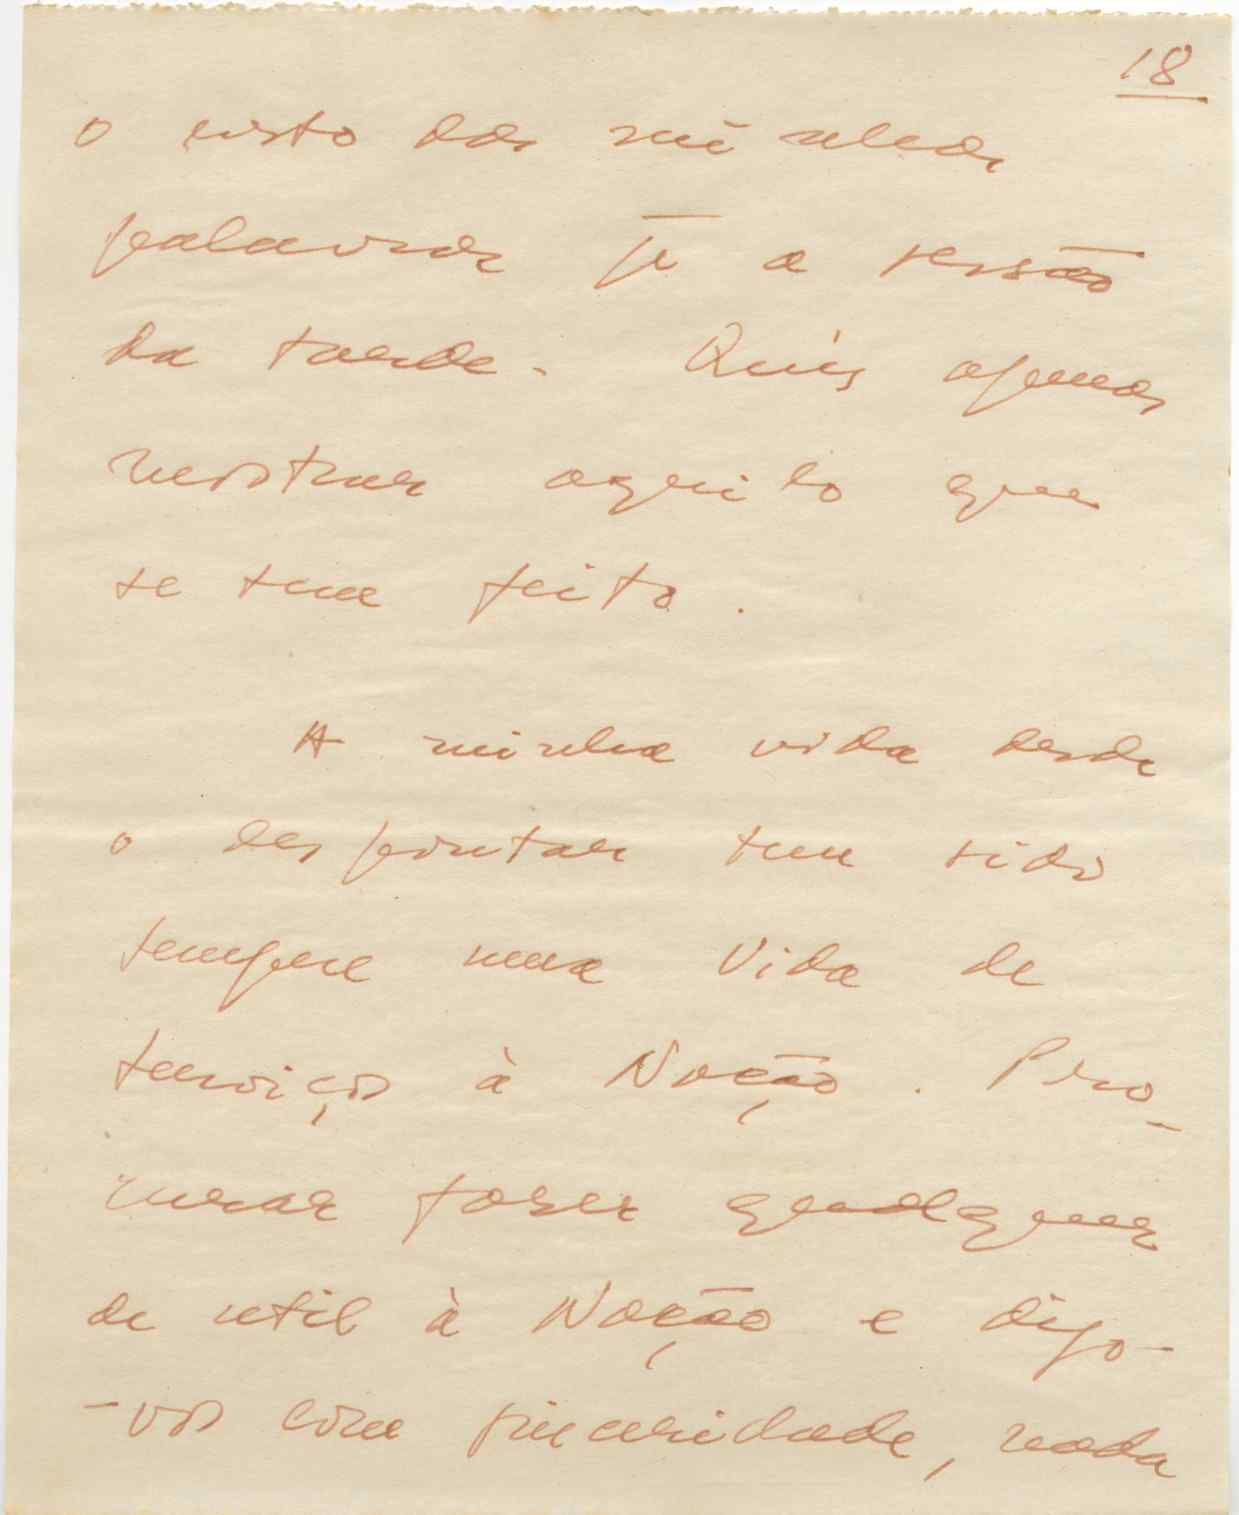 18
o resto das minhas
palavras pª a sessão
da tarde. Quis apenas
mostrar aquilo que
se tem feito.
A minha vida desde
o despontar tem sido
sempre uma Vida de
serviço à Nação. Pro-
curar fazer qualquer
de util à Nação e digo-
-vos com sinceridade, nada